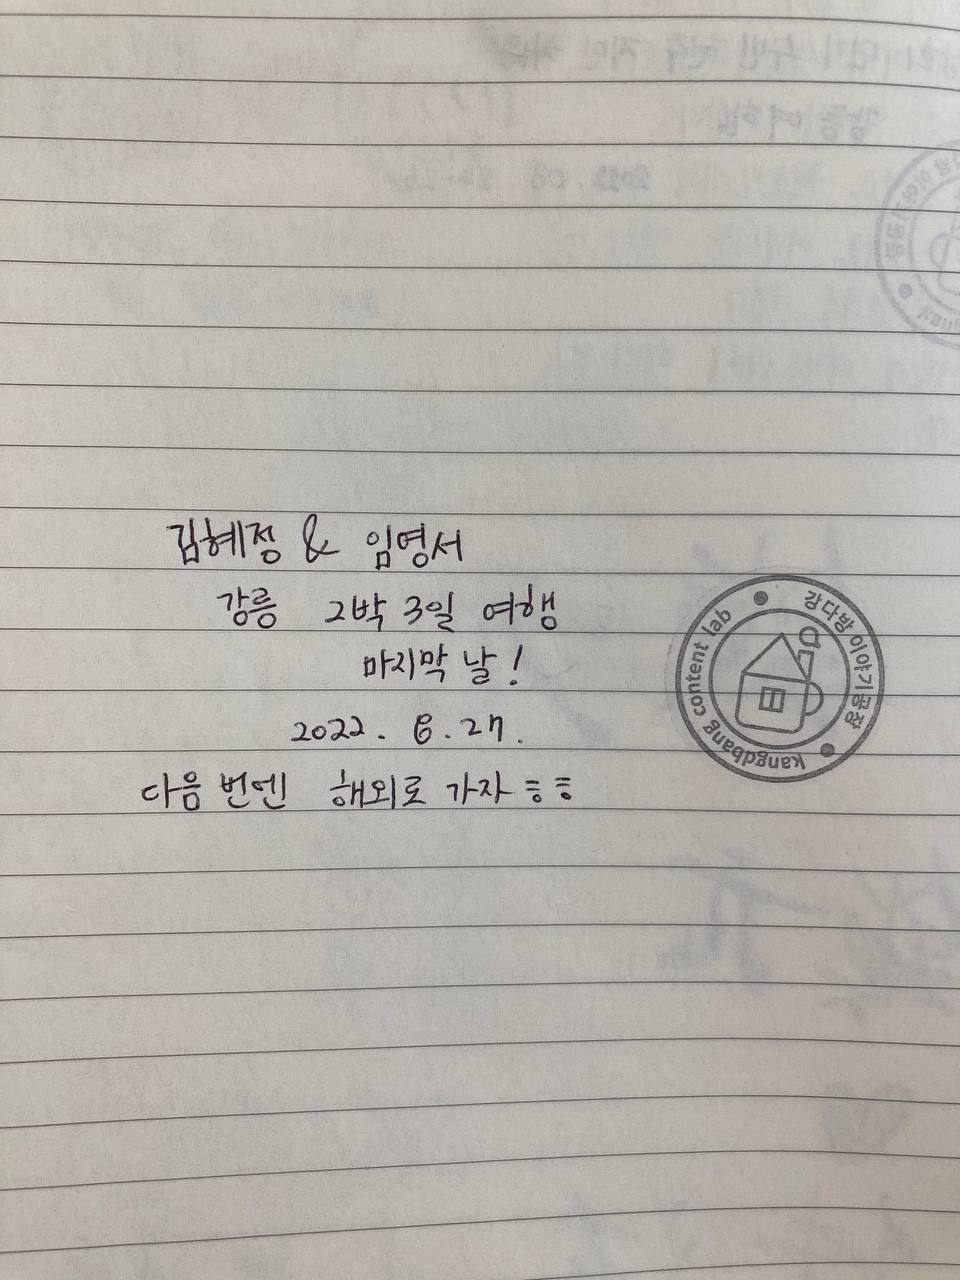 김혜정 & 임영서
강릉 2박 3일 여행
마지막 날!
2022. 8. 27.
다음 번엔 해외로 가자 ㅎㅎ
강다방 이야기공장
kangdbang content lab